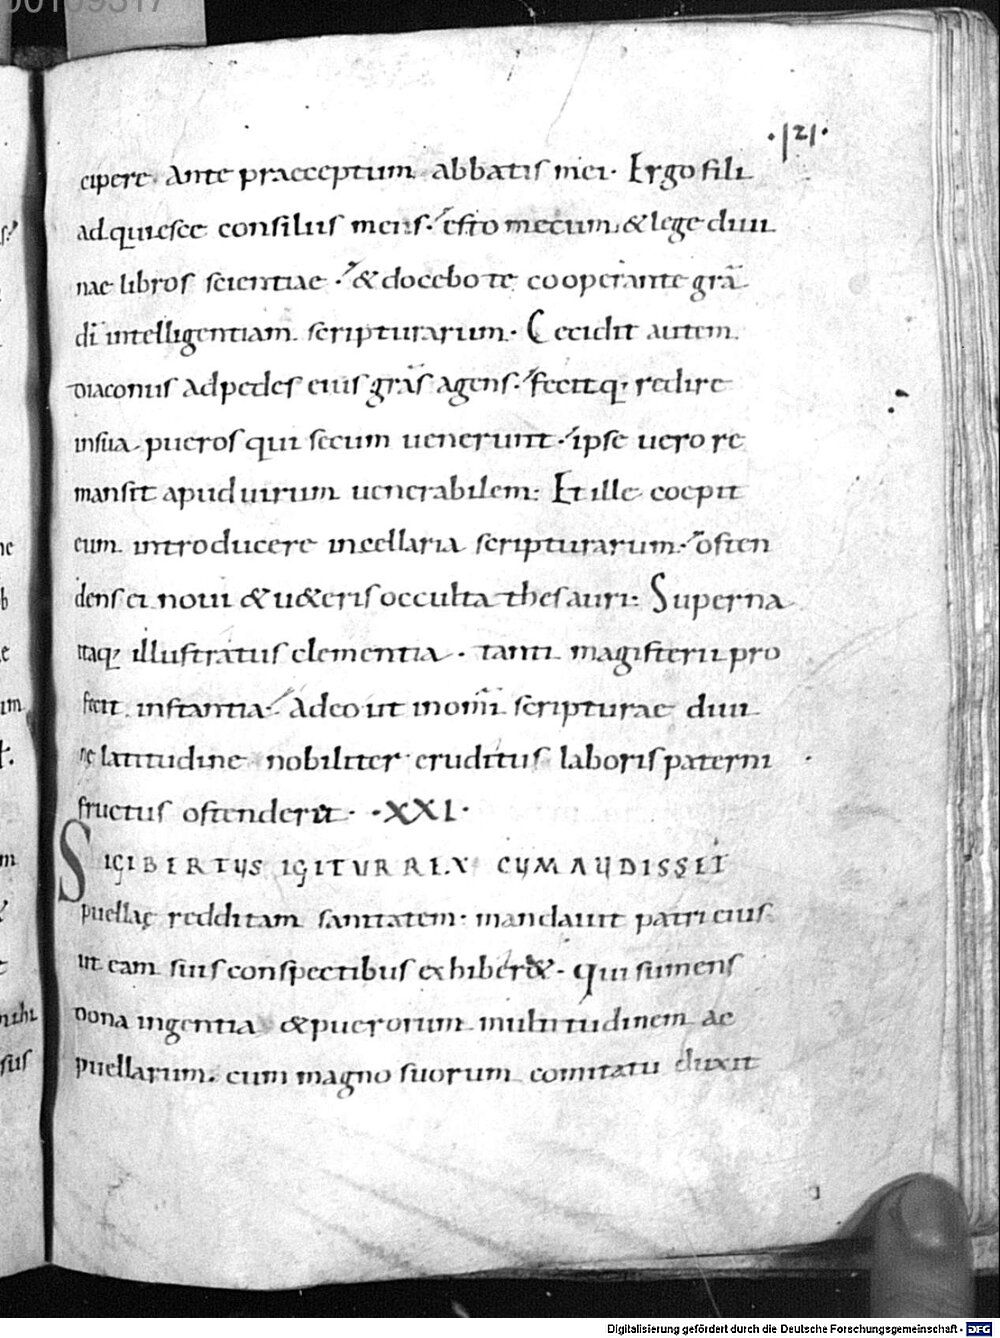 00109317
·121·
cipere ante praeceptum abbatis mei· Ergo fili
adquiesce consiliis meis· esto mecum & lege diui
nae libros scientiae · & docebo te cooperante gra̅
di̅ intelligentiam scripturarum· Cecidit autem
diaconus ad pedes eius gra̅s agens· fecitq; redire
in sua pueros qui secum uenerunt· ipse uero re
mansit apud uirum uenerabilem: Et ille coepit
eum introducere in cellaria scripturarum· osten
dens ei noui & u&eris occulta thesauri: Superna
itaq; illustratus clementia · tanti magisterii pro
fecit instantia· Adeo ut in omi̅ scripturae diui
ne latitudine nobiliter eruditus laboris paterni
fructus ostenderet· ·XXI·
SIGIBERTUS IGITUR REX CUM AUDISSET
puellaę redditam sanitatem: mandauit patri eius
ut eam suis conspectibus exhiber&· qui sumens
dona ingentia & puerorum multitudinem ac
puellarum· cum magno suorum comitatu duxit
ne
b
e
im
m
nihi
sus
Digitalisierung gefördert durch die Deutsche Forschungsgemeinschaft - DFG